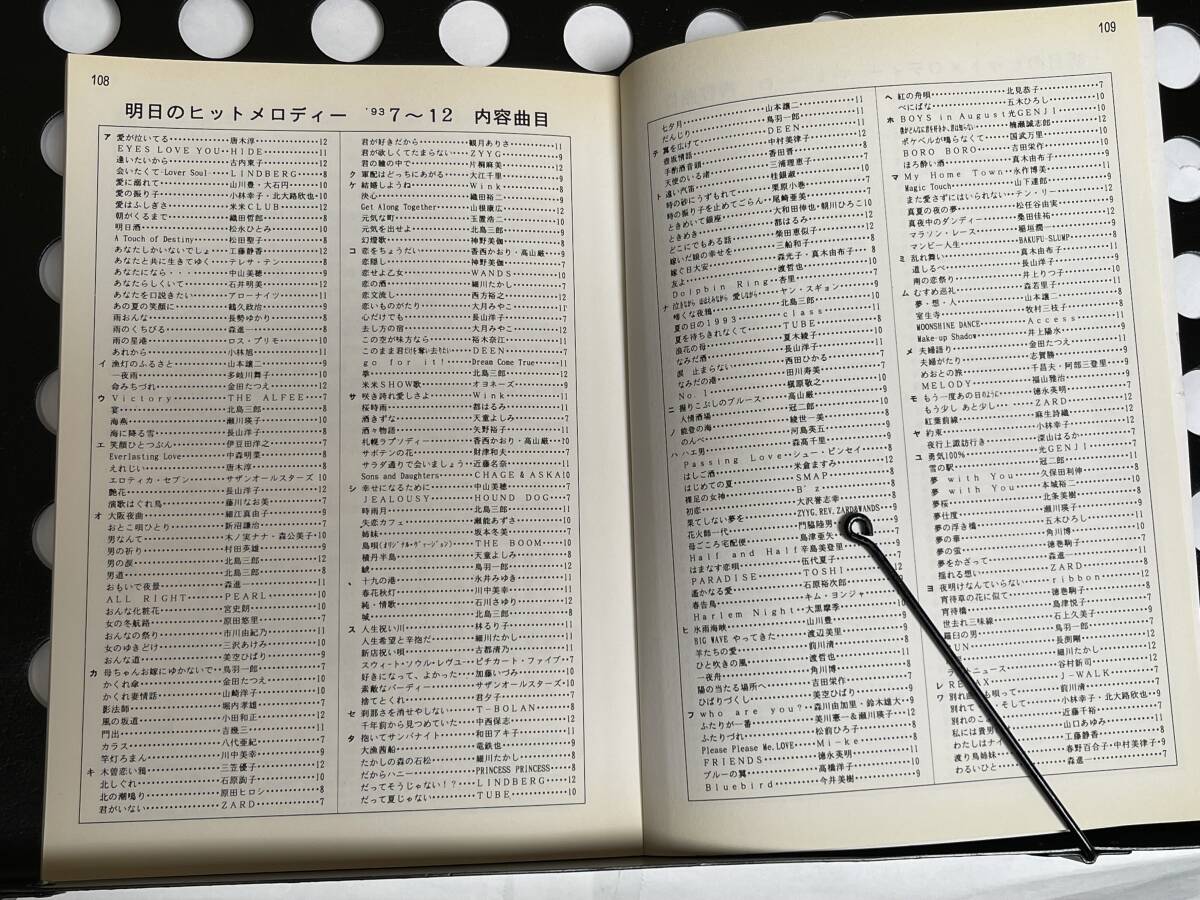 108
明日のヒットメロディー '93 7〜12 内容曲目
ア 愛が泣いてる 唐木淳 12
EYES LOVE YOU HIDE 11
逢いたいから 古内東子 12
会いたくて-Lover Soul- LINDBERG 8
愛に溺れて 山川豊・大石円 10
愛の振り子 小林幸子・北大路欣也 10
愛はふしぎさ 米米CLUB 12
朝がくるまで 織田哲郎 8
明日酒 松永ひとみ 10
A Touch of Destiny 松田聖子 8
あなたしかいないでしょ 工藤静香 12
あなたと共に生きてゆく テレサ・テン 8
あなたになら・・・ 中山美穂 9
あなたらしくいて 石井明美 12
あなたを口説きたい アローナイツ 11
あの夏の笑顔に 鶴久政治 8
雨おんな 長勢ゆかり 8
雨のくちびる 森進一 8
雨の星港 ロス・プリモ 10
あれから 小林旭 11
イ 漁灯のふるさと 山本譲二 9
一夜雨 多岐川舞子 10
命みちづれ 金田たつえ 12
ウ Victory THE ALFEE 12
宴 北島三郎 8
海燕 瀬川瑛子 10
海に降る雪 長山洋子 8
エ 笑顔ひとつぶん 伊豆田洋之 7
Everlasting Love 中森明菜 8
えれじい 唐木淳 8
エロティカ・セブン サザンオールスターズ 10
艶花 長山洋子 12
演歌はぐれ鳥 藤川なお美 7
オ 大阪夜曲 細江真由子 7
おとこ唄ひとり 新沼謙治 7
男なんて 木ノ実ナナ・森公美子 10
男の祈り 村田英雄 9
男の涙 北島三郎 12
男道 北島三郎 8
おもいで夜景 森進一 11
ALL RIGHT PEARL 10
おんな化粧花 宮史朗 10
女の冬航路 原田悠里 7
おんなの祭り 市川由紀乃 11
女のゆきどけ 三沢あけみ 10
おんな道 美空ひばり 9
カ 母ちゃんお嫁にゆかないで 鳥羽一郎 7
かくれ傘 金田たつえ 10
かくれ妻情話 山崎洋子 10
影法師 堀内孝雄 7
風の坂道 小田和正 12
門出 吉幾三 11
カラス 八代亜紀 7
竿灯ろまん 川中美幸 9
キ 木曽恋い鴉 三笠優子 12
北しぐれ 石原詢子 10
北の潮鳴り 原田ヒロシ 8
君がいない ZARD 7
君が好きだから 観月ありさ 11
君が欲しくてたまらない ZYYG 9
君の瞳の中で 片桐麻美 12
ク 軍配はどっちにあがる 大江千里 9
ケ 結婚しようね Wink 8
決心 織田裕二 9
Get Along Together 山根康広 12
元気な町 玉置浩二 10
元気を出せよ 北島三郎 9
幻燈歌 神野美伽 8
コ 恋をちょうだい 香西かおり・高山厳 9
恋隠し 神野美伽 7
恋せよ乙女 WANDS 10
恋の酒 細川たかし 7
恋文流し 西方裕之 12
恋いものがたり 大月みやこ 11
心だけでも 長山洋子 7
去し方の宿 大月みやこ 12
この空が味方なら 裕木奈江 11
このまま君だけを奪い去りたい DEEN 7
go for it! Dream Come True 11
拳 北島三郎 12
米米SHOW歌 オヨネーズ 9
サ 咲き誇れ愛しさよ Wink 11
桜時雨 都はるみ 11
酒きずな 天童よしみ 7
酒々物語 矢野裕子 11
札幌ラプソディー 香西かおり・高山厳 10
サボテンの花 財津和夫 7
サラダ通りで会いましょう 近藤名奈 11
Sons and Daughters CHAGE & ASKA 10
シ 幸せになるために 中山美穂 7
JEALOUSY HOUND DOG 7
時雨月 北島三郎 11
失恋カフェ 瀬能あずさ 10
姉妹 坂本冬美 10
島唄(オリジナル・ヴァージョン) THE BOOM 10
積丹半島 天童よしみ 8
鯱 鳥羽一郎 12
十九の港 永井みゆき 11
春花秋灯 川中美幸 11
純・情歌 石川さゆり 12
城 北島三郎 8
ス 人生祝い川 林るり子 11
人生希望と辛抱だ 細川たかし 7
新店祝い唄 古都清乃 11
スウィート・ソウル・レヴュー ピチカート・ファイブ 7
好きになって、よかった 加藤いづみ 10
素敵なバーディー サザンオールスターズ 10
捨てとくれ 君夕子 7
セ 刹那さを消せやしない T-BOLAN 8
千年前から見つめていた 中西保志 12
タ 抱いてサンバナイト 和田アキ子 11
大漁茜船 竜鉄也 9
たかしの森の石松 細川たかし 7
だからハニー PRINCESS PRINCESS 8
だってそうじゃない!? LINDBERG 12
だって夏じゃない TUBE 10
109
七夕月 山本譲二 11
だんじり 鳥羽一郎 11
テ 翼を広げて DEEN 11
壺坂情話 中村美律子 12
手酌酒音頭 香田晋 7
天使のいる渚 三浦理恵子 7
ト 遠い汽笛 桂銀淑 10
時の砂にうずもれて 栗原小巻 7
時の振り子を止めてごらん 尾崎亜美 7
ときめいて銀座 大和田伸也・朝川ひろこ 10
ときめき 都はるみ 12
どこにでもある話 柴田恵似子 12
嫁いだ娘の幸せを 三船和子 8
嫁ぐ日大安 森光子・真木由布子 8
友よ 渡哲也 10
Dolphin Ring 杏里 7
夏の日の1993 class
夏を待ちきれなくて TUBE
浪花の母 夏木綾子
なみだ酒 長山洋子
涙 止まらない 西田ひかる
なみだの港 田川寿美
No.1 槇原敬之
ニ 握りこぶしのブルース 高山厳
人情酒場 冠二郎
ノ 能登の海 綾世一美
のんべ 河島英五
ハ ハエ男 森高千里
Passing Love シュー・ピンセイ 8
はしご酒 米倉ますみ 12
はじめての夏 SMAP
裸足の女神 B'z
初恋 大沢誉志幸
果てしない夢を ZYYG,REV,ZARD&WANDS 9
花火師一代 門脇陸男
母ごころ宅配便 島津亜矢
Half and Half 辛島美登里
はまなす恋唄 伍代夏子
PARADISE TOSHI
遙かなる愛 石原裕次郎
春告鳥 キム・ヨンジャ
Harlem Night 大黒摩季 10
ヒ 氷雨海峡 山川豊
BIG WAVE やってきた 渡辺美里 9
羊たちの愛 前川清
ひと吹きの風 渡哲也
一夜舟 角川博
陽の当たる場所へ 吉田栄作
ひばりづくし 美空ひばり 7
フ who are you? 森川由加里・鈴木雄大 9
ふたりが一番 美川憲一&瀬川瑛子 12
ふたりづれ 松前ひろ子 8
Please Please Me,LOVE Mi-ke
FRIENDS 徳永英明
ブルーの翼 高橋洋子
Bluebird 今井美樹 9
ヘ 紅の舟唄 北見恭子 7
べにばな 五木ひろし 10
ホ BOYS in August 光GENJI 9
ポケベルが鳴らなくて 国武万里 9
BORO BORO 吉田栄作 10
ほろ酔い酒 真木由布子 11
マ My Home Town 永作博美
Magic Touch 山下達郎
また逢さずにはいられない テン・リー
真夏の夜の夢 松任谷由実
真夜中のダンディー 桑田佳祐
マラソン・レース 稲垣潤一
マンピー人生 BAKUFU-SLUMP 8
ミ 乱れ舞い 真木由布子
道しるべ 長山洋子
南の恋祭り 井上りつ子
ム むすめ巡礼 森若里子
夢・想・人 山本譲二
室生寺 牧村三枝子
MOONSHINE DANCE Access
Make-up Shadow 井上陽水
メ 夫婦語り 金田たつえ
夫婦がたり 志賀勝
めおとの旅 千昌夫・阿部三登里 9
MELODY 福山雅治
モ もう一度あの日のように 徳永英明
もう少し あと少し ZARD
紅葉前線 麻生詩織
ヤ 約束 小林幸子
夜行上諏訪行き 深山はるか
ユ 勇気100% 光GENJI
雪の駅 冠二郎
夢 with You 久保田利伸
夢 with You 本城裕二
夢桜 北条美樹
夢仕度 瀬川瑛子
夢の浮き橋 五木ひろし
夢の華 角川博
夢の蛍 原田悠里
夢をかざって 徳巻駒子
揺れる想い ZARD
ヨ 夜明けなんていらない ribbon
宵待草の花に似て 徳巻駒子
宵待橋 島津悦子
世去れ三味線 石上久美子
羅臼の男 鳥羽一郎
長渕剛
細川たかし
谷村新司
J-WALK
前川清
小林幸子・北大路欣也 9
近藤千裕
山口あゆみ
わたしはナイ 工藤静香
渡り鳥姉妹 春野百合子・中村美律子
わるいひと 森進一